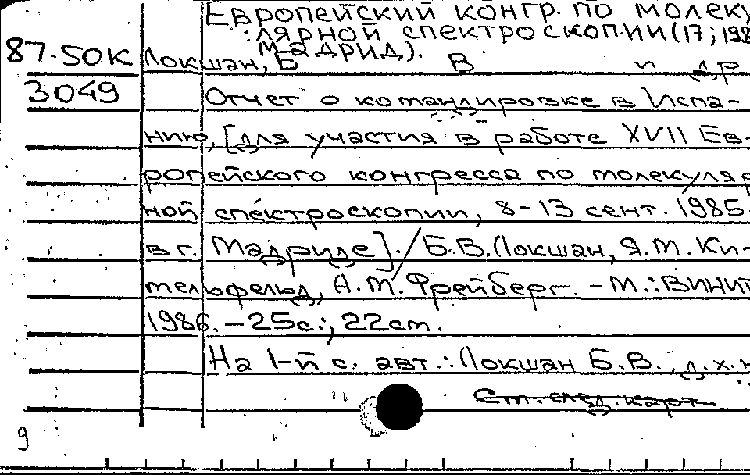 Европейский конгр. по молеку
лярной спектроскопии (17; 198
Мадрид).
87-50К Локшан, Б В и др
3049 Отчет о командировке в Испа-
нию, [для участия в работе XVII Ев-
ропейского конгресса по молекуляр
ной спектроскопии, 8-13 сент. 1985
в г. Мадриде]. / Б.В. Локшан, Я.М. Ки-
тельфельд, А.М. Фрейберг. - М.: ВИНИТ
1986. - 25 с.; 22 см.
На 1-й с. авт.: Локшан Б.В. д.х.н
См. след. карт
9